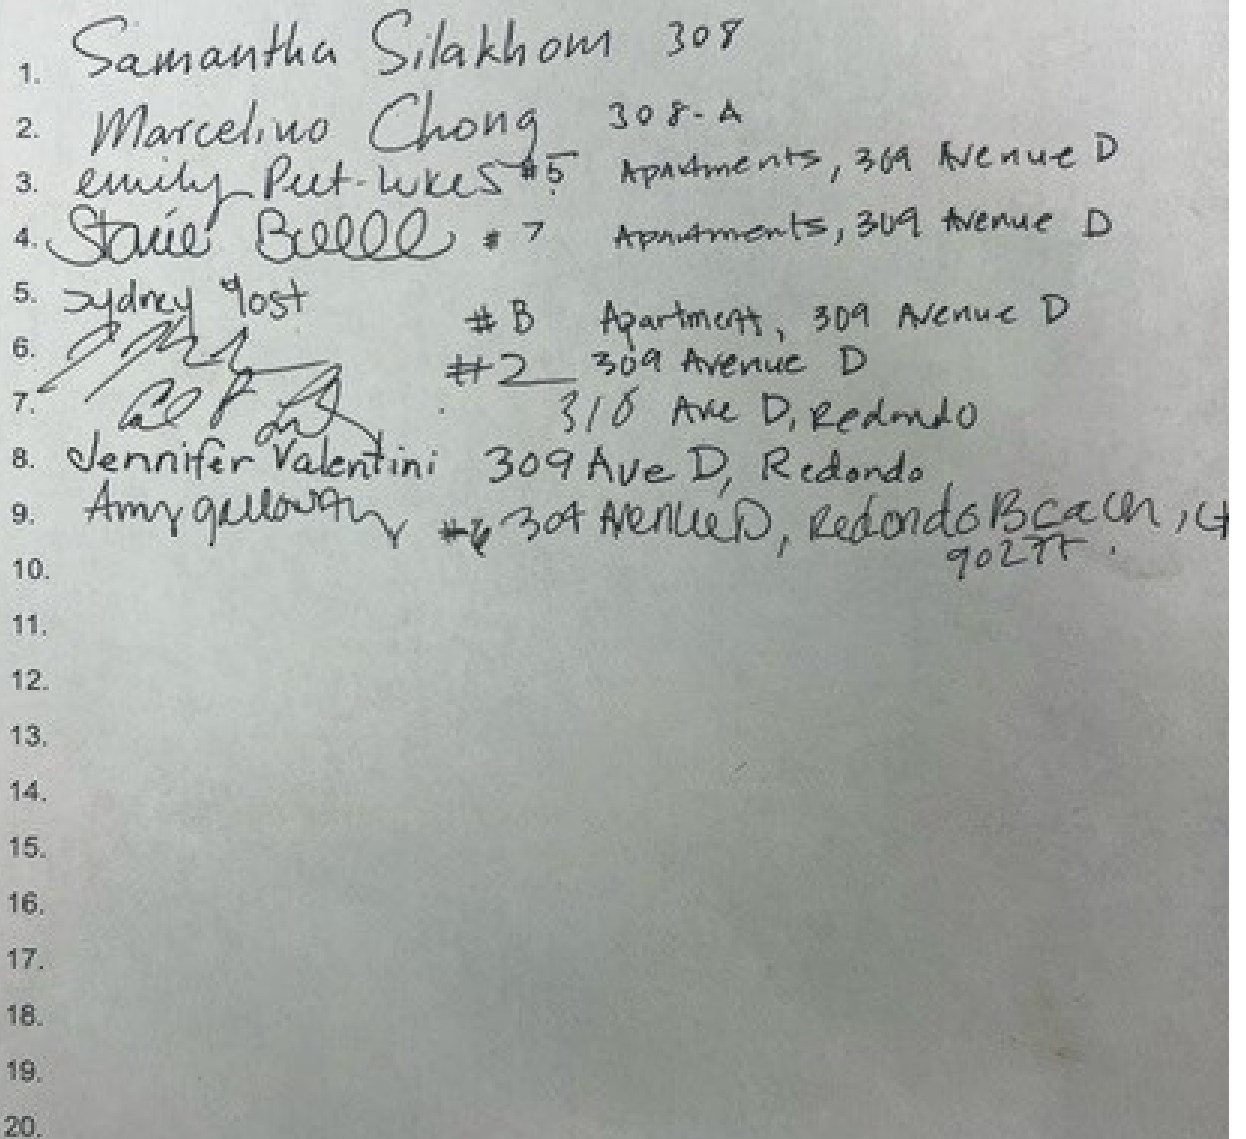 1. Samantha Silakhom 308
2. Marcelino Chong 308-A
3. emily Peet-Lukes #5 Apartments, 309 Avenue D
4. Stacie #7 Apartments, 309 Avenue D
5. Sydney Yost #B Apartment, 309 Avenue D
6. #2 309 Avenue D
7. Ave D, Redondo
8. Jennifer Valentini 309 Ave D, Redondo
9. Amy galloway Avenue D, Redondo Beach, CA
90277.
10.
11.
12.
13.
14.
15.
16.
17.
18.
19.
20.